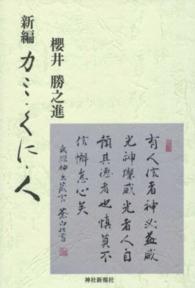 櫻井 勝之進
新編
カミ・くに・人
有人信者神必益威
光神威光者人自
預其德者也慎莫不
信懈怠心矣
神社新報社